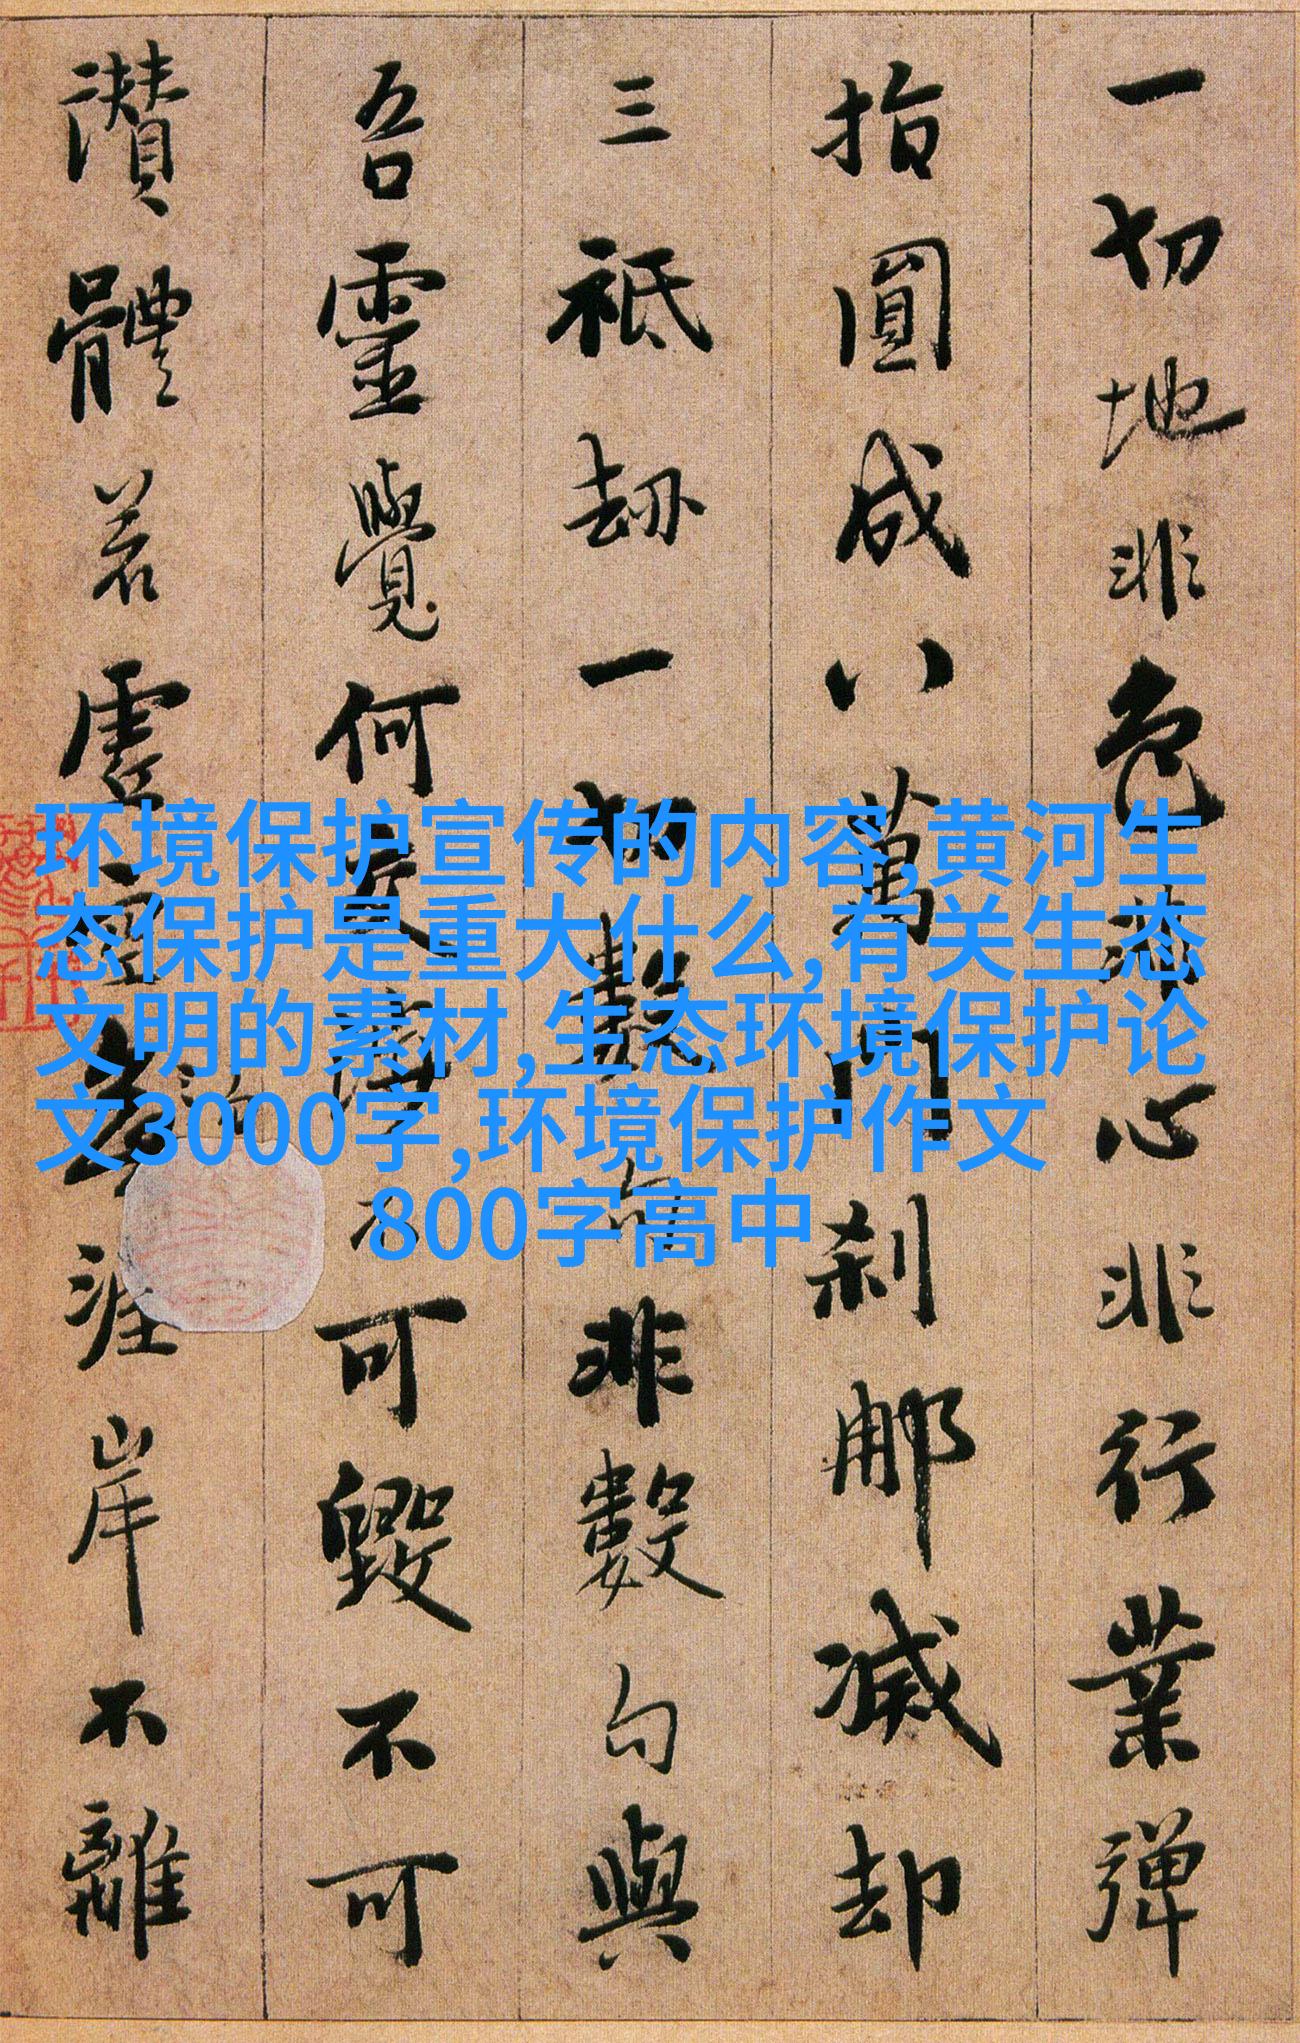 一切地非色非心非行業彈
指圓成八萬門刹那滅却
三祇劫一切數句非數句與
吾靈覺何交涉不可毀不可
讚體若虛空涯岸不離
环境保护宣传的内容,黄河生
态保护是重大什么,有关生态
文明的素材,生态环境保护论
文3000字,环境保护作文
800字高中